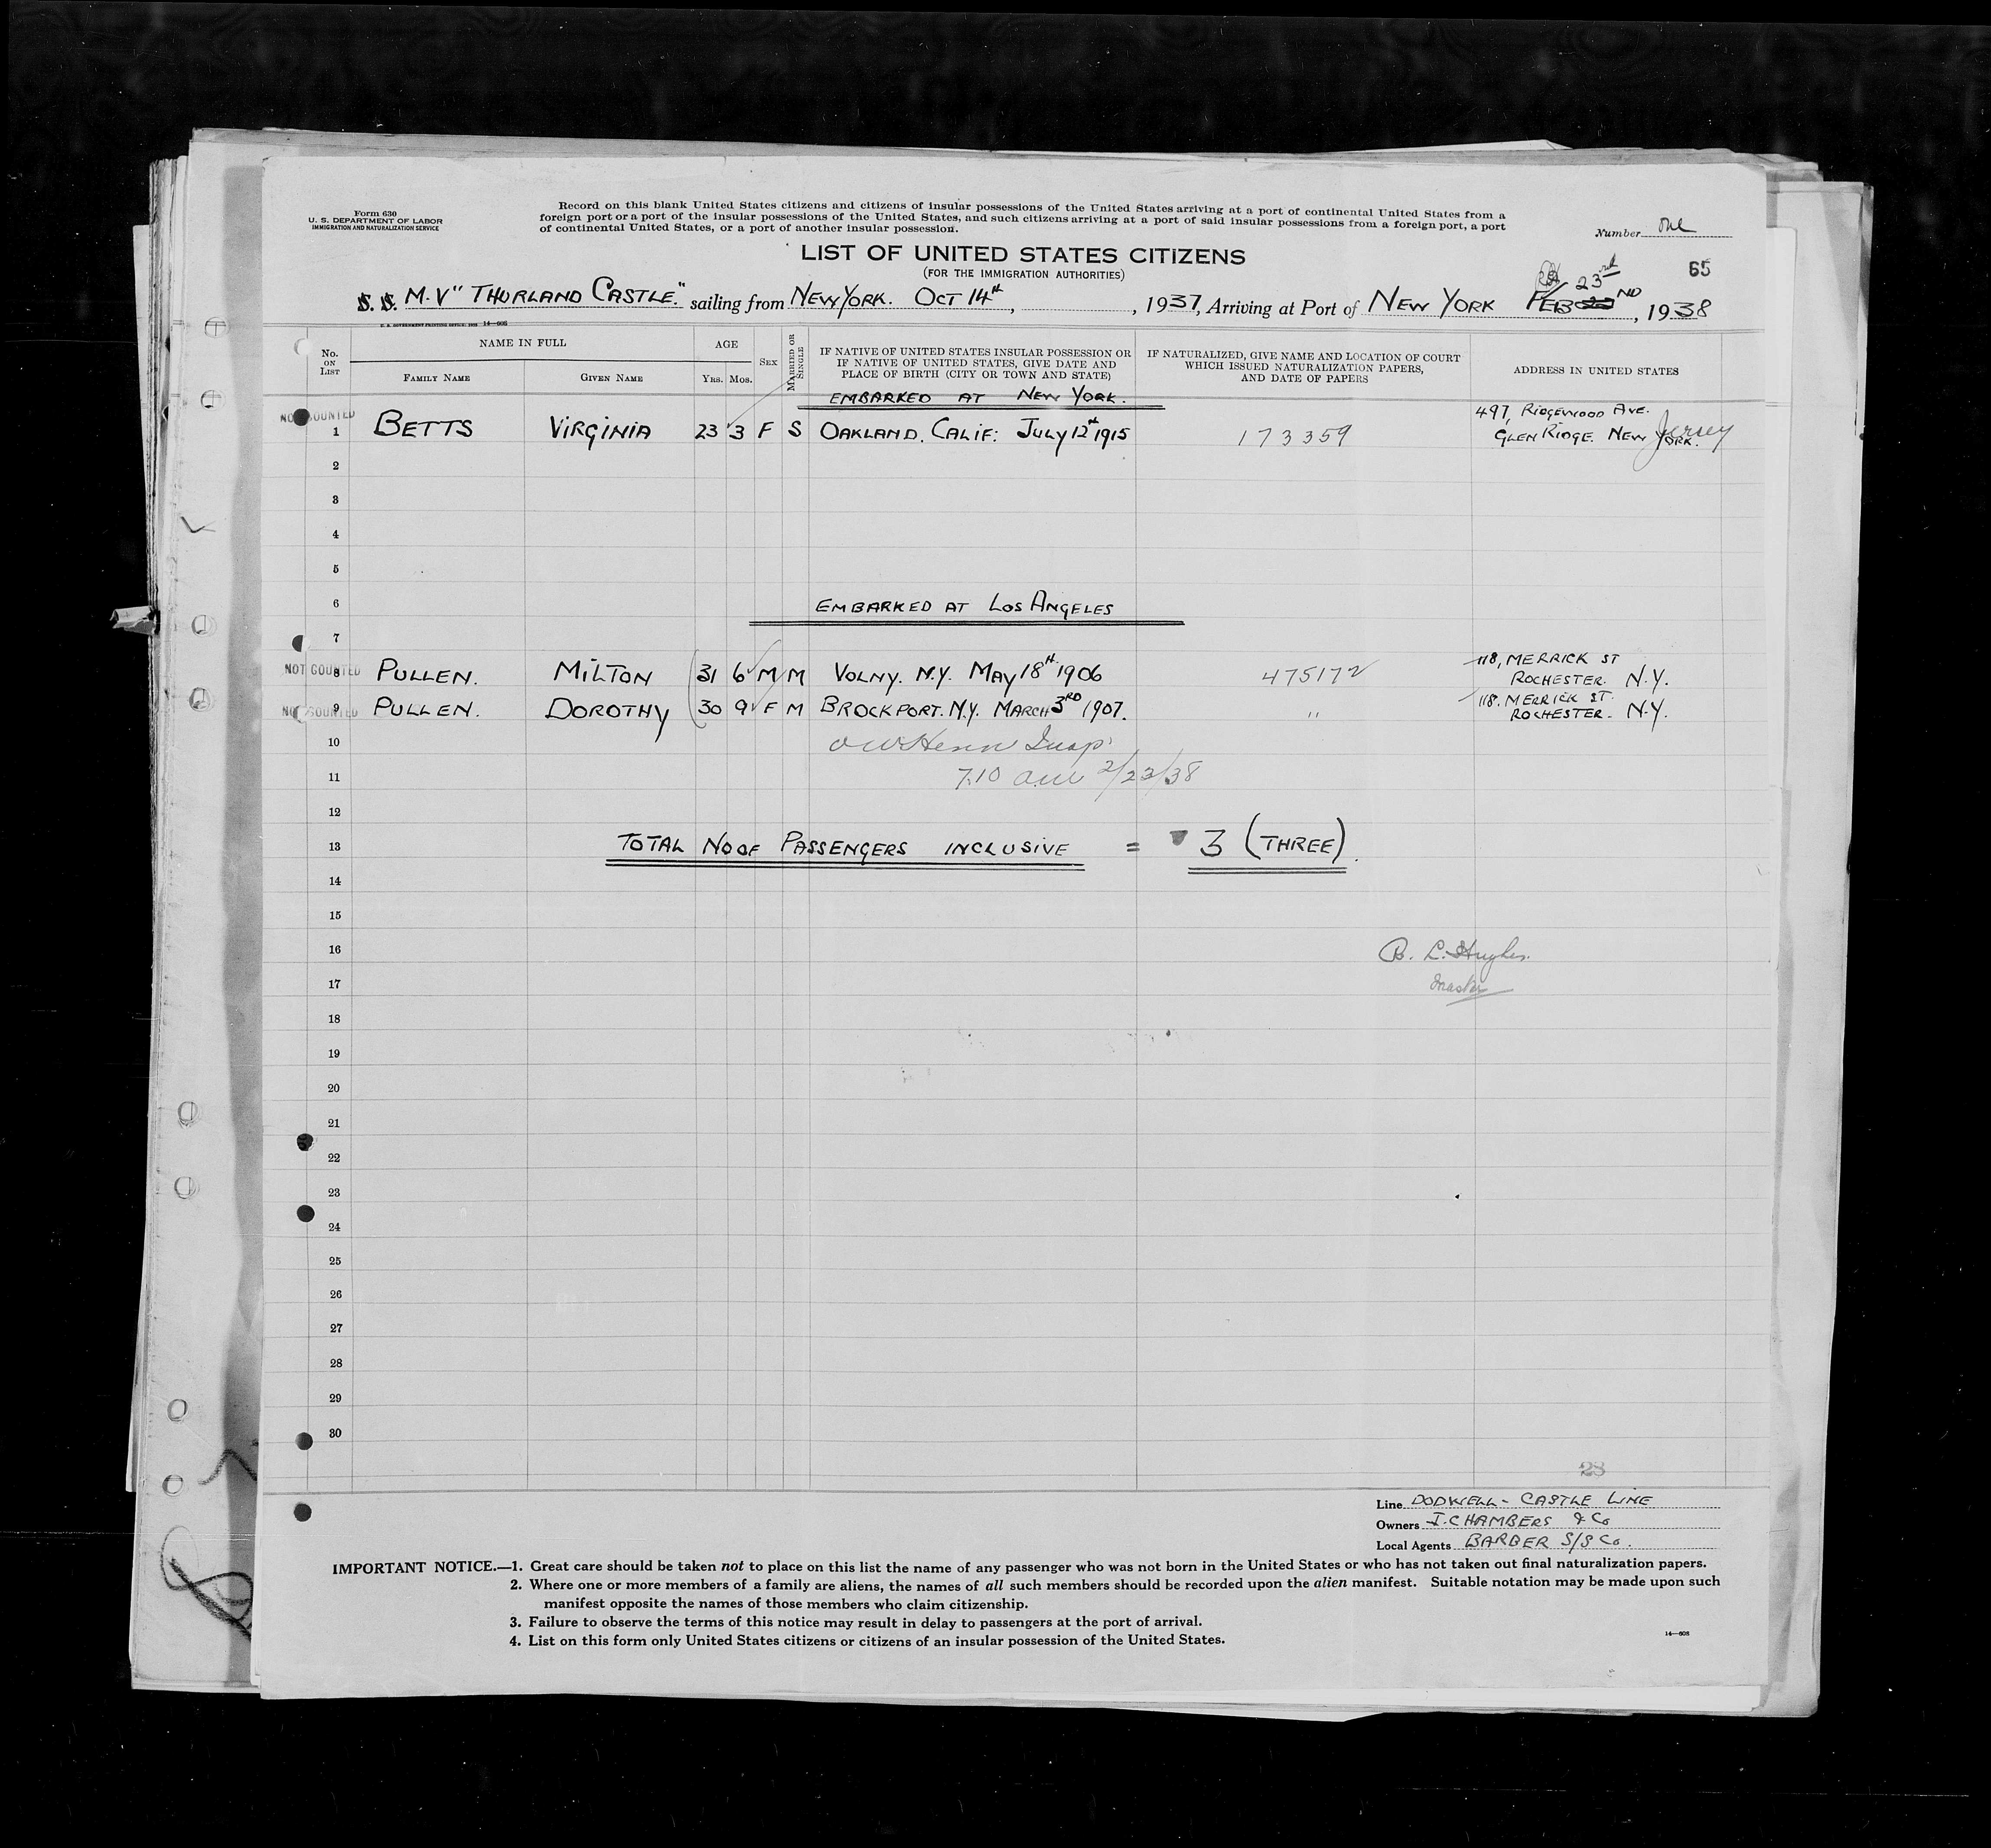 Form 630
U. S. DEPARTMENT OF LABOR
IMMIGRATION AND NATURALIZATION SERVICE
Record on this blank United States citizens and citizens of insular possessions of the United States arriving at a port of continental United States from a
foreign port or a port of the insular possessions of the United States, and such citizens arriving at a port of said insular possessions from a foreign port, a port
of continental United States, or a port of another insular possession.
Number One
LIST OF UNITED STATES CITIZENS
(FOR THE IMMIGRATION AUTHORITIES)
65
23rd
S. S. M.V " THURLAND CASTLE." sailing from NEW YORK. OCT 14th, , 1937, Arriving at Port of NEW YORK FEB 22ND, 1938
U. S. GOVERNMENT PRINTING OFFICE 14—608
No. ON LIST
NAME IN FULL
FAMILY NAME
GIVEN NAME
AGE
YRS. MOS.
SEX
MARRIED OR SINGLE
IF NATIVE OF UNITED STATES INSULAR POSSESSION OR
IF NATIVE OF UNITED STATES, GIVE DATE AND
PLACE OF BIRTH (CITY OR TOWN AND STATE)
IF NATURALIZED, GIVE NAME AND LOCATION OF COURT
WHICH ISSUED NATURALIZATION PAPERS,
AND DATE OF PAPERS
ADDRESS IN UNITED STATES
EMBARKED AT NEW YORK.
NOT COUNTED
497, RIDGEWOOD AVE.
1 BETTS VIRGINIA 23 3 F S OAKLAND, CALIF: JULY 12th 1915 173359 GLEN RIDGE. NEW YORK. Jersey
2
3
4
5
6 EMBARKED AT LOS ANGELES
7
118, MERRICK ST
NOT COUNTED 8 PULLEN. MILTON 31 6 M M VOLNY. N.Y. MAY 18th 1906 475172 ROCHESTER. N.Y.
118. MERRICK ST.
NOT COUNTED 9 PULLEN. DOROTHY 30 9 F M BROCKPORT. N.Y. MARCH 3RD 1907. " ROCHESTER. N.Y.
10 Insp
11 7.10 am 2/23/38
12
13 TOTAL NO OF PASSENGERS INCLUSIVE = 3 (THREE).
14
15
16 B. L. Hughes.
17 Master
18
19
20
21
22
23
24
25
26
27
28
29
30
28
Line DODWELL - CASTLE LINE
Owners J. CHAMBERS & Co
Local Agents BARBER S/S Co.
IMPORTANT NOTICE.—1. Great care should be taken not to place on this list the name of any passenger who was not born in the United States or who has not taken out final naturalization papers.
2. Where one or more members of a family are aliens, the names of all such members should be recorded upon the alien manifest. Suitable notation may be made upon such
manifest opposite the names of those members who claim citizenship.
3. Failure to observe the terms of this notice may result in delay to passengers at the port of arrival.
4. List on this form only United States citizens or citizens of an insular possession of the United States.
14—608